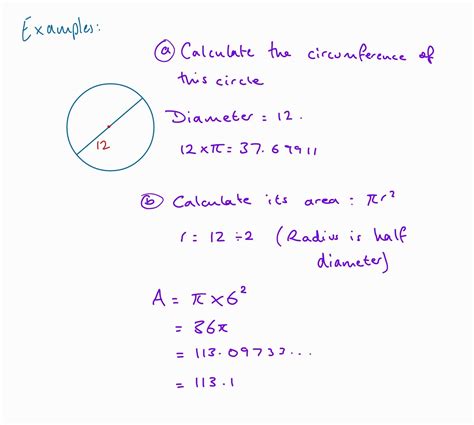 Examples:
(a) Calculate the circumference of
this circle
Diameter = 12.
12
12 × π = 37.69911
(b) Calculate its area : πr²
r = 12 ÷ 2 (Radius is half
diameter)
A = π × 6²
= 36π
= 113.09733...
= 113.1